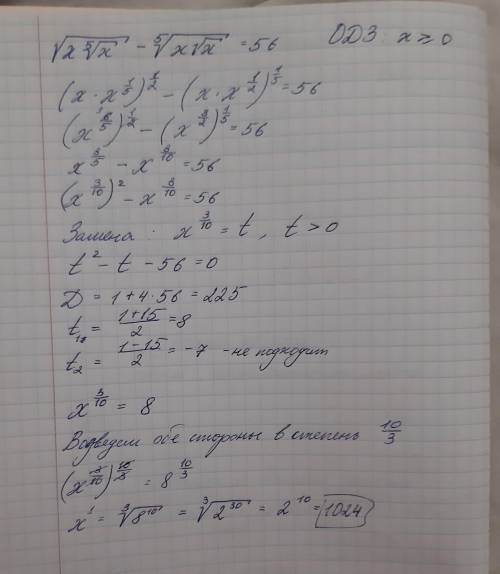 √(x ⁵√x) − ⁵√(x√x) = 56    ОДЗ: x ≥ 0
(x · x^(1/5))^(1/2) − (x · x^(1/2))^(1/5) = 56
(x^(6/5))^(1/2) − (x^(3/2))^(1/5) = 56
x^(3/5) − x^(3/10) = 56
(x^(3/10))² − x^(3/10) = 56
Замена: x^(3/10) = t, t > 0
t² − t − 56 = 0
D = 1 + 4·56 = 225
t₁ = (1+15)/2 = 8
t₂ = (1−15)/2 = −7 - не подходит
x^(3/10) = 8
Возведем обе стороны в степень 10/3
(x^(3/10))^(10/3) = 8^(10/3)
x¹ = ³√(8¹⁰) = ³√(2³⁰) = 2¹⁰ = 1024